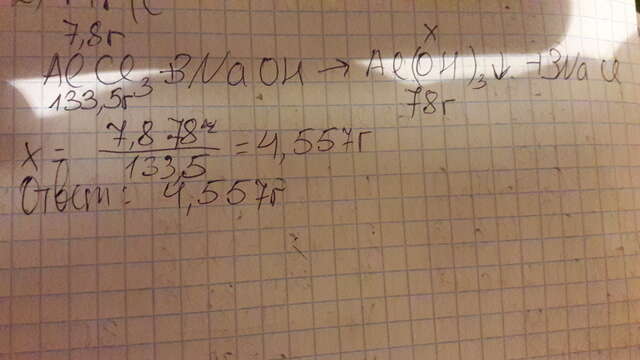 7,8г
x
AlCl3 + 3NaOH → Al(OH)3↓ + 3NaCl
133,5г 78г
x = 7,8·78г / 133,5 = 4,557г
Ответ: 4,557г